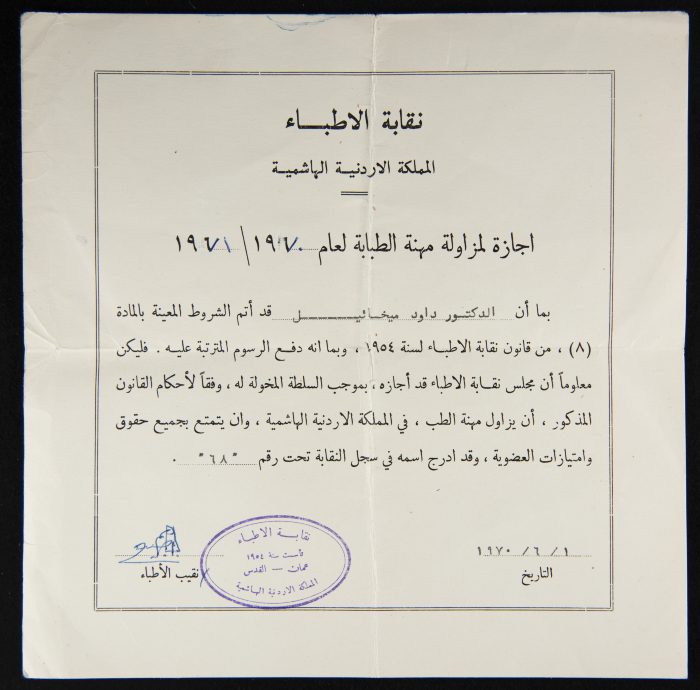 نقابة الاطباء
المملكة الاردنية الهاشمية
اجازة لمزاولة مهنة الطبابة لعام ١٩٧٠ / ١٩٧١
بما أن الدكتور داود ميخائيل قد أتم الشروط المعينة بالمادة
(٨) ، من قانون نقابة الاطباء لسنة ١٩٥٤ ، وبما انه دفع الرسوم المترتبة عليه . فليكن
معلوماً أن مجلس نقابة الاطباء قد أجازه ، بموجب السلطة المخولة له ، وفقاً لأحكام القانون
المذكور ، أن يزاول مهنة الطب ، في المملكة الاردنية الهاشمية ، وان يتمتع بجميع حقوق
وامتيازات العضوية ، وقد ادرج اسمه في سجل النقابة تحت رقم "٦٨" .
١ / ٦ / ١٩٧٠
التاريخ
نقابة الاطباء
تأسست سنة ١٩٥٤
عمان - القدس
المملكة الاردنية الهاشمية
نقيب الأطباء